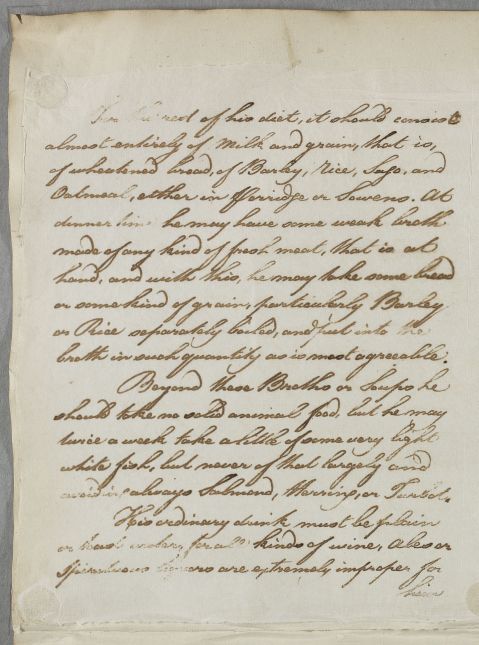 For the rest of his diet, it should consist
almost entirely of Milk and grain, that is,
of wheatened bread, of Barley, Rice, Sago, and
Oatmeal, either in Porridge or Sowens. At
dinner time he may have some weak broth
made of any kind of fresh meat, that is at
hand, and with this, he may take some bread
or some kind of grain, particularly Barley
or Rice separately boiled, and put into the
broth in such quantity as is most agreeable.
Beyond these Broths or Soups he
should take no solid animal food, but he may
twice a week take a little of some very light
white fish, but never of that largely and
avoiding always Salmond, Herring, or Turbot.
His ordinary drink must be plain
or toast water, for all kinds of wine, Ales or
Spirituous liquors are extremely improper for
him